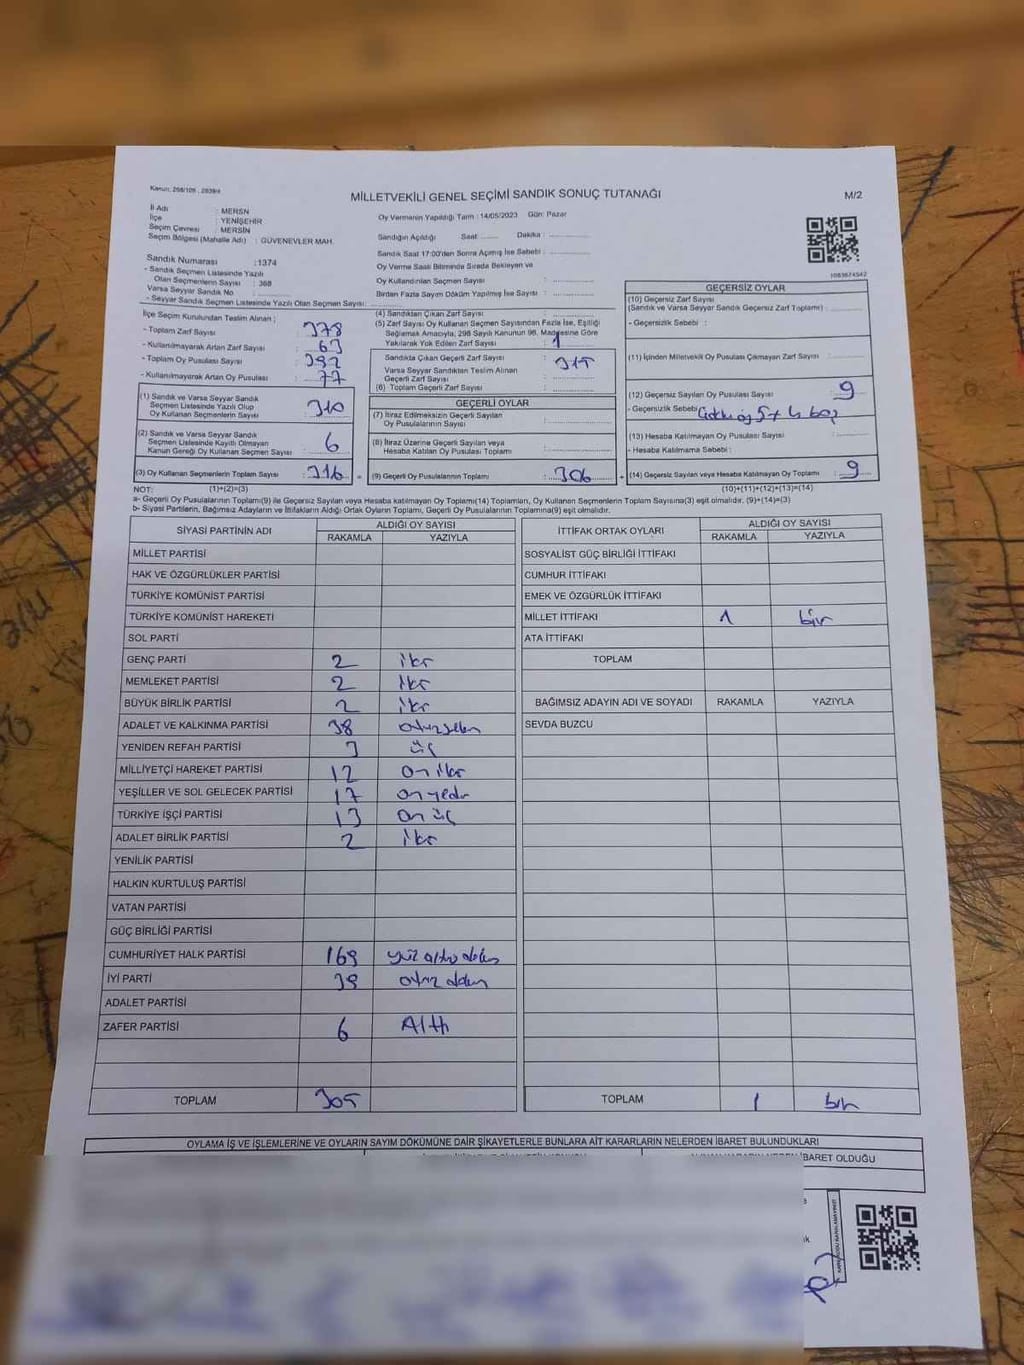 Kanun: 298/105 , 2839/4
MİLLETVEKİLİ GENEL SEÇİMİ SANDIK SONUÇ TUTANAĞI
M/2
İl Adı : MERSİN
İlçe : YENİŞEHİR
Seçim Çevresi : MERSİN
Seçim Bölgesi (Mahalle Adı) : GÜVENEVLER MAH.
Oy Vermenin Yapıldığı Tarih : 14/05/2023 Gün: Pazar
Sandığın Açıldığı Saat ........ Dakika : ................
Sandık Saat 17:00'den Sonra Açılmış İse Sebebi : ................
Oy Verme Saati Bitiminde Sırada Bekleyen ve
Oy Kullandırılan Seçmen Sayısı : ................
Birden Fazla Sayım Döküm Yapılmış İse Sayısı : ................
1083674542
Sandık Numarası :1374
- Sandık Seçmen Listesinde Yazılı
Olan Seçmenlerin Sayısı : 368
Varsa Seyyar Sandık No : ................
- Seyyar Sandık Seçmen Listesinde Yazılı Olan Seçmen Sayısı: ................
İlçe Seçim Kurulundan Teslim Alınan ;
- Toplam Zarf Sayısı : 378
- Kullanılmayarak Artan Zarf Sayısı : 63
- Toplam Oy Pusulası Sayısı : 392
- Kullanılmayarak Artan Oy Pusulası : 77
(1) Sandık ve Varsa Seyyar Sandık
Seçmen Listesinde Yazılı Olup
Oy Kullanan Seçmenlerin Sayısı : 310
(2) Sandık ve Varsa Seyyar Sandık
Seçmen Listesinde Kayıtlı Olmayan
Kanun Gereği Oy Kullanan Seçmen Sayısı : 6
(3) Oy Kullanan Seçmenlerin Toplam Sayısı : 316
(4) Sandıktan Çıkan Zarf Sayısı : ................
(5) Zarf Sayısı Oy Kullanan Seçmen Sayısından Fazla İse, Eşitliği
Sağlamak Amacıyla, 298 Sayılı Kanunun 98. Maddesine Göre
Yakılarak Yok Edilen Zarf Sayısı : 1
Sandıkta Çıkan Geçerli Zarf Sayısı : 315
Varsa Seyyar Sandıktan Teslim Alınan
Geçerli Zarf Sayısı : ................
(6) Toplam Geçerli Zarf Sayısı : ................
GEÇERLİ OYLAR
(7) İtiraz Edilmeksizin Geçerli Sayılan
Oy Pusulasının Sayısı : ................
(8) İtiraz Üzerine Geçerli Sayılan veya
Hesaba Katılan Oy Pusulası Toplamı : ................
= (9) Geçerli Oy Pusulalarının Toplamı : 306
GEÇERSİZ OYLAR
(10) Geçersiz Zarf Sayısı
(Sandık ve Varsa Seyyar Sandık Geçersiz Zarf Toplamı) : ................
- Geçersizlik Sebebi :
(11) İçinden Milletvekili Oy Pusulası Çıkmayan Zarf Sayısı : ................
(12) Geçersiz Sayılan Oy Pusulası Sayısı : 9
- Geçersizlik Sebebi : 5 + 4 boş
(13) Hesaba Katılmayan Oy Pusulası Sayısı : ................
- Hesaba Katılmama Sebebi :
+ (14) Geçersiz Sayılan veya Hesaba Katılmayan Oy Toplamı : 9
NOT: (1)+(2)=(3) (10)+(11)+(12)+(13)=(14)
a- Geçerli Oy Pusulalarının Toplamı(9) ile Geçersiz Sayılan veya Hesaba katılmayan Oy Toplamı(14) Toplamları, Oy Kullanan Seçmenlerin Toplam Sayısına(3) eşit olmalıdır. (9)+(14)=(3)
b- Siyasi Partilerin, Bağımsız Adayların ve İttifakların Aldığı Ortak Oyların Toplamı, Geçerli Oy Pusulalarının Toplamına(9) eşit olmalıdır.
SİYASİ PARTİNİN ADI ALDIĞI OY SAYISI
RAKAMLA YAZIYLA
MİLLET PARTİSİ
HAK VE ÖZGÜRLÜKLER PARTİSİ
TÜRKİYE KOMÜNİST PARTİSİ
TÜRKİYE KOMÜNİST HAREKETİ
SOL PARTİ
GENÇ PARTİ 2 iki
MEMLEKET PARTİSİ 2 iki
BÜYÜK BİRLİK PARTİSİ 2 iki
ADALET VE KALKINMA PARTİSİ 38 otuzsekiz
YENİDEN REFAH PARTİSİ 3 üç
MİLLİYETÇİ HAREKET PARTİSİ 12 on iki
YEŞİLLER VE SOL GELECEK PARTİSİ 17 on yedi
TÜRKİYE İŞÇİ PARTİSİ 13 on üç
ADALET BİRLİK PARTİSİ 2 iki
YENİLİK PARTİSİ
HALKIN KURTULUŞ PARTİSİ
VATAN PARTİSİ
GÜÇ BİRLİĞİ PARTİSİ
CUMHURİYET HALK PARTİSİ 169 yüz altmış dokuz
İYİ PARTİ 39 otuz dokuz
ADALET PARTİSİ
ZAFER PARTİSİ 6 Altı
TOPLAM 305
İTTİFAK ORTAK OYLARI ALDIĞI OY SAYISI
RAKAMLA YAZIYLA
SOSYALİST GÜÇ BİRLİĞİ İTTİFAKI
CUMHUR İTTİFAKI
EMEK VE ÖZGÜRLÜK İTTİFAKI
MİLLET İTTİFAKI 1 bir
ATA İTTİFAKI
TOPLAM
BAĞIMSIZ ADAYIN ADI VE SOYADI RAKAMLA YAZIYLA
SEVDA BUZCU
TOPLAM 1 bir
OYLAMA İŞ VE İŞLEMLERİNE VE OYLARIN SAYIM DÖKÜMÜNE DAİR ŞİKAYETLERLE BUNLARA AİT KARARLARIN NELERDEN İBARET BULUNDUKLARI
İBARET OLDUĞU